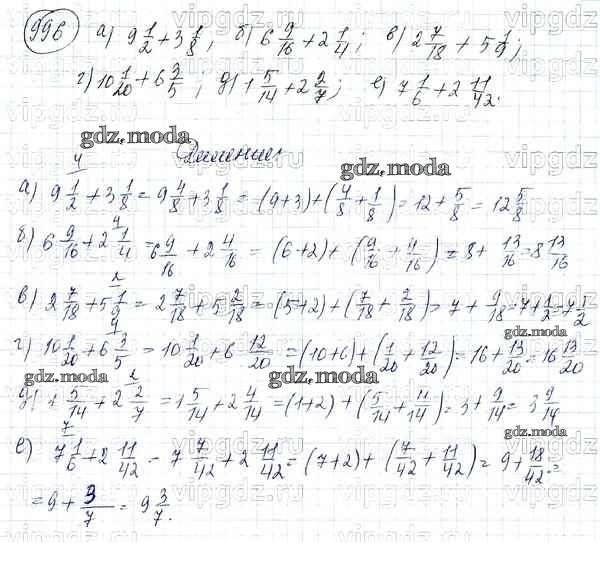 996 а) 9 1/2 + 3 1/8; б) 6 9/16 + 2 1/4; в) 2 7/18 + 5 1/9;
г) 10 1/20 + 6 3/5; д) 1 5/14 + 2 2/7; е) 7 1/6 + 2 11/42.
Решение:
а) 9 1/2 + 3 1/8 = 9 4/8 + 3 1/8 = (9+3) + (4/8 + 1/8) = 12 + 5/8 = 12 5/8
б) 6 9/16 + 2 1/4 = 6 9/16 + 2 4/16 = (6+2) + (9/16 + 4/16) = 8 + 13/16 = 8 13/16
в) 2 7/18 + 5 1/9 = 2 7/18 + 5 2/18 = (5+2) + (7/18 + 2/18) = 7 + 9/18 = 7 + 1/2 = 7 1/2
г) 10 1/20 + 6 3/5 = 10 1/20 + 6 12/20 = (10+6) + (1/20 + 12/20) = 16 + 13/20 = 16 13/20
д) 1 5/14 + 2 2/7 = 1 5/14 + 2 4/14 = (1+2) + (5/14 + 4/14) = 3 + 9/14 = 3 9/14
е) 7 1/6 + 2 11/42 = 7 7/42 + 2 11/42 = (7+2) + (7/42 + 11/42) = 9 + 18/42 =
= 9 + 3/7 = 9 3/7.
gdz.moda
vipgdz.ru